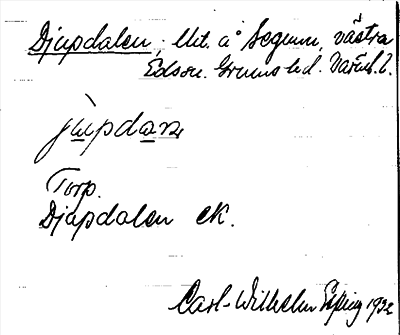 Djupdalen, Utt. å Segmon, västra
Edson. Grums hd. Värml. l.
jùpdan
Torp.
Djupdalen ek.
Carl-Wilhelm 1932